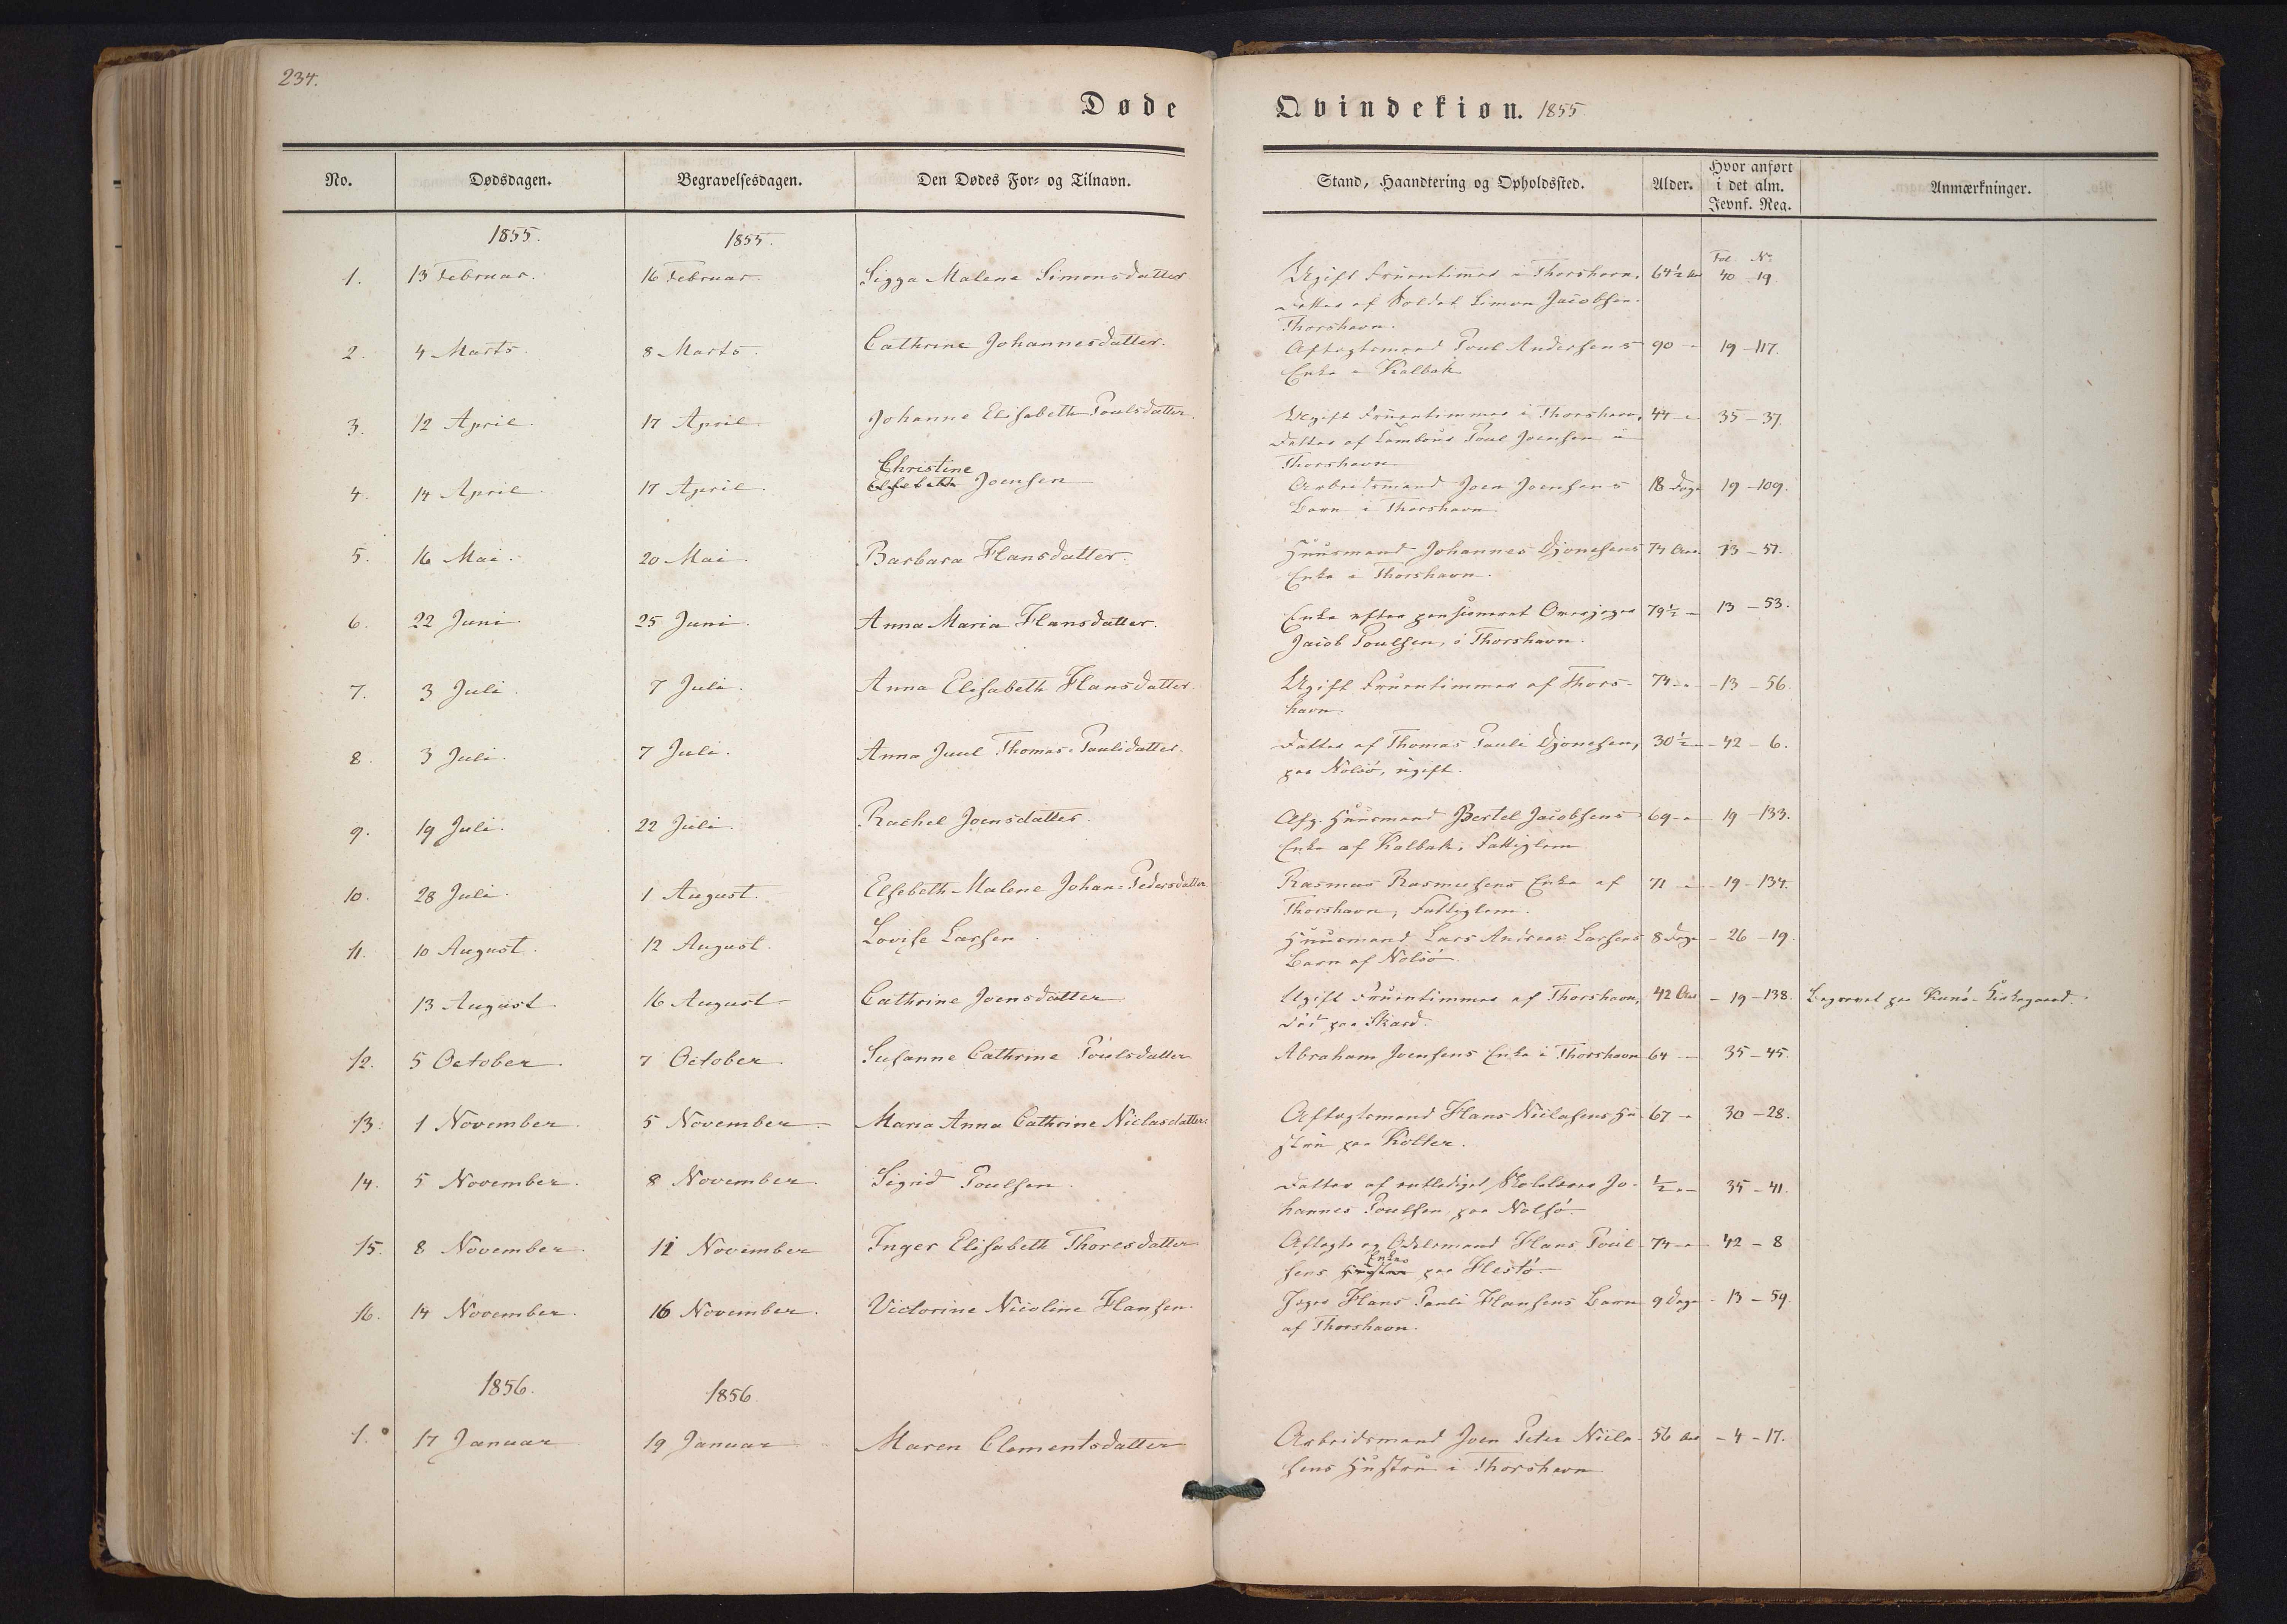 234.
Døde
Qvindekiøn. 1855
No.
Dødsdagen.
Begravelsesdagen.
Den Dødes For= og Tilnavn.
Stand, Haandtering og Opholdssted.
Alder.
Hvor anført
i det alm.
Jevnf. Reg.
Anmærkninger.
1855.
1855.
Fol. No.
1. 13 Februar. 16 Februar. Sigga Malena Simonsdatter Ugift Fruentimmer i Thorshavn, 64½ Aar 40 - 19
Datter af Soldat Simon Jacobsen
Thorshavn.
2. 4 Marts. 8 Marts. Cathrine Johannesdatter. Aftægtsmand Poul Andersens 90 - 19 - 117.
Enke i Kalbak
3. 12 April. 17 April. Johanne Elisabeth Poulsdatter. Ugift Fruentimmer i Thorshavn, 44 - 35 - 37.
Datter af Poul Joensen i
Thorshavn
Christine
4. 14 April. 17 April. Elsebeth Joensen Arbeidsmand Joen Joensens 18 Dage 19 - 109.
Barn i Thorshavn.
5. 16 Mai. 20 Mai. Barbara Hansdatter. Huusmand Johannes Djonesens 74 Aar. 13 - 57.
Enke i Thorshavn.
6. 22 Juni. 25 Juni. Anna Maria Hansdatter. Enke efter pensioneret Overjæger 79½ - 13 - 53.
Jacob Poulsen, i Thorshavn.
7. 3 Juli. 7 Juli. Anna Elisabeth Hansdatter. Ugift Fruentimmer af Thors- 74 - 13 - 56.
havn.
8. 3 Juli. 7 Juli. Anna Juul Thomas-Paulidatter. Datter af Thomas Pauli Djonesen, 30½ - 42 - 6.
paa Nolsö, ugift.
9. 19 Juli. 22 Juli. Rachel Joensdatter. Afg. Huusmand Bertel Jacobsens 69 - 19 - 133.
Enke af Kalbak, Fattiglem
10. 28 Juli. 1 August. Elsebeth Malene Johan-Pedersdatter Rasmus Rasmusens Enke af 71 - 19 - 134.
Thorshavn, Fattiglem.
11. 10 August. 12 August. Lovise Larsen. Huusmand Lars Andreas Larsens 8 Dage - 26 - 19.
Barn af Nolsö.
13 August 16 August Cathrine Joensdatter Ugift Fruentimmer af Thorshavn, 42 Aar - 19 - 138. Begravet paa Kunö Kirkegaard.
Död paa Skard.
12. 5 October. 7 October. Susanne Cathrine Poulsdatter Abraham Joensens Enke i Thorshavn 64 - 35 - 45.
13. 1 November. 5 November. Maria Anna Cathrine Niclasdatter. Aftægtsmand Hans Niclasens Hu- 67 - 30 - 28.
stru paa Kolter.
14. 5 November. 8 November. Sigrid Poulsen. Datter af entlediget Skolelærer Jo- ½ - 35 - 41.
hannes Poulsen paa Nolsö.
15. 8 November. 11 November Inger Elisabeth Thoresdatter Aftægts og Odelsmand Hans Poul- 74 - 42 - 8
Enke
sens Hustru paa Hestö.
16. 14 November. 16 November. Victorine Nicoline Hansen. Jæger Hans Pauli Hansens Barn 9 Dage - 13 - 59.
af Thorshavn.
1856.
1856.
1. 17 Januar 19 Januar Maren Clementsdatter Arbeidsmand Joen Peter Nicla- 56 Aar - 4 - 17.
sens Hustru i Thorshavn